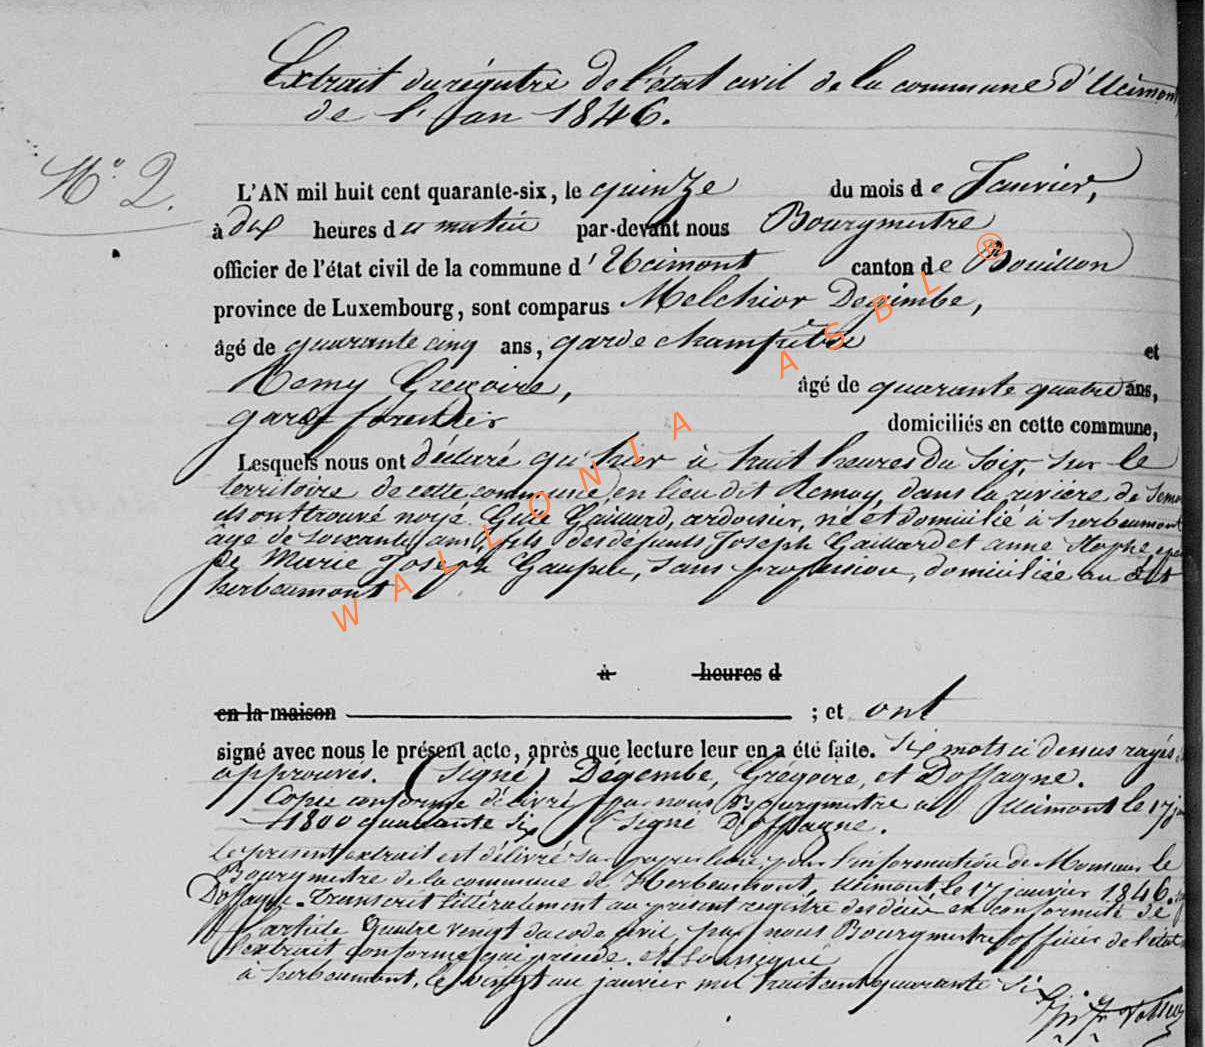 Extrait du régistre de l'état civil de la commune d'Ucimont
de l'an 1846.
N.° 2.
L'AN mil huit cent quarante-six, le quinze du mois de Janvier,
à dix heures du matin par-devant nous Bourgmestre
officier de l'état civil de la commune d'Ucimont canton de Bouillon
province de Luxembourg, sont comparus Melchior Degimbe,
âgé de quarante cinq ans, garde champêtre et
Remy Gregoire, âgé de quarante quatre ans,
garde forestier domiciliés en cette commune,
Lesquels nous ont déclaré qu'hier à huit heures du soir, sur le
territoire de cette commune, en lieu dit Remoy, dans la rivière de Semo
ils ont trouvé noyé Gaillard, ardoisier, né et domicilié à herbeumont
age de soixante ans, fils des défunts Joseph Gaillard et anne
de Marie Joseph sans profession, domiciliée au dit
herbeumont
à heures d
en la maison ; et ont
signé avec nous le présent acte, après que lecture leur en a été faite. six mots ci dessus rayés
approuvés. (signé) Dégembe, Grégoire, et Doffagne.
Copie conforme délivré par nous Bourgmestre a Ucimont le 17
1800 quarante six (signé Doffagne.
Le présent extrait est délivré sur papier libre, pour l'information de Monsieur le
Bourgmestre de la commune de Herbeumont, Ucimont le 17 janvier 1846.
Doffagne. Transcrit littéralement au présent registre des décès en conformité de
l'article Quatre vingt du code civil, par nous Bourgmestre officier de l'état
l'extrait conforme qui précède.
à herbeumont, le vingt un janvier mil huit cent quarante six
WALLONIA ASBL ®